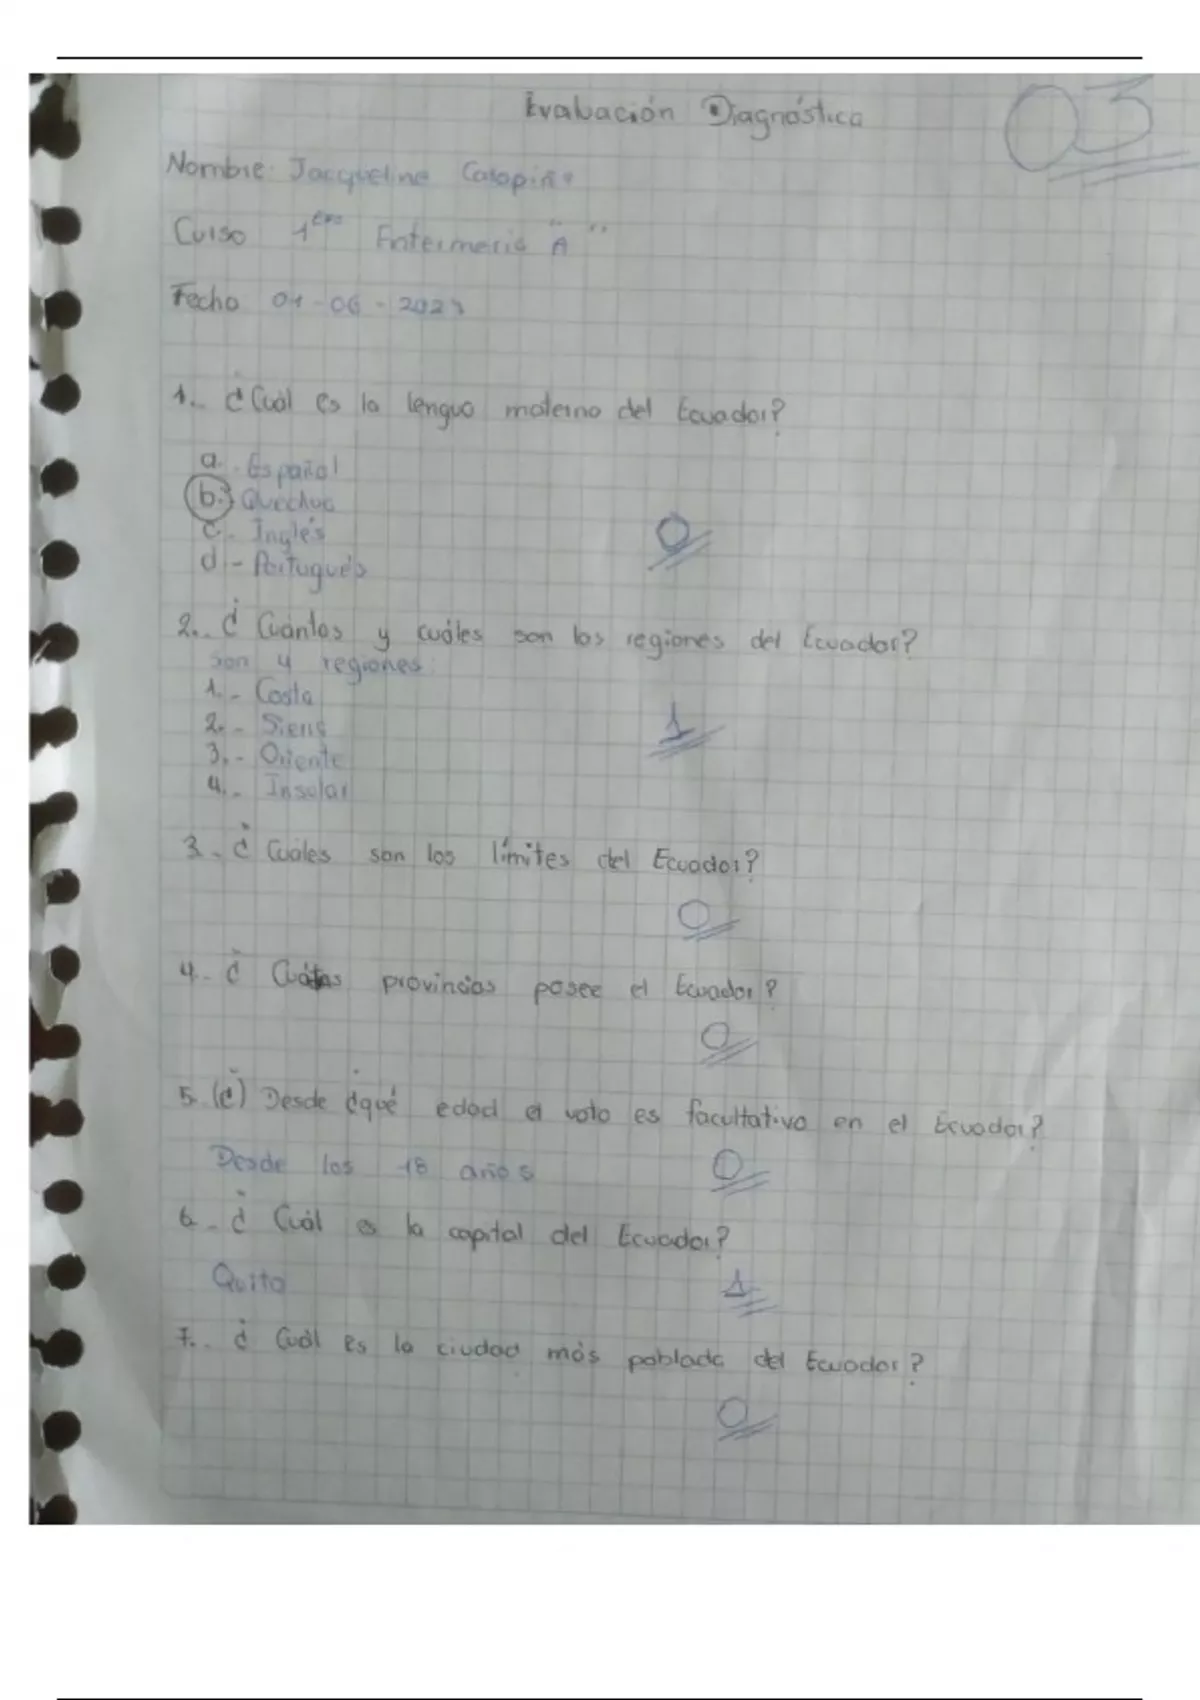 Evaluación Diagnóstica
03
Nombre: Jacqueline
Curso 1ero Enfermeria "A"
Fecha 01-06-2023
1.- ¿Cuál es la lengua materna del Ecuador?
a.- Español
b.- Quechua
c.- Inglés
d.- Portugués
0
2.- ¿Cuántas y cuáles son las regiones del Ecuador?
son 4 regiones:
1.- Costa
2.- Sierra
3.- Oriente
4.- Insular
1
3.- ¿Cuáles son los límites del Ecuador?
0
4.- ¿ provincias posee el Ecuador?
0
5. (¿) Desde ¿qué edad el voto es facultativo en el Ecuador?
Desde los 18 años
0
6.- ¿Cuál es la capital del Ecuador?
Quito
1
7.- ¿Cuál es la ciudad más poblada del Ecuador?
0